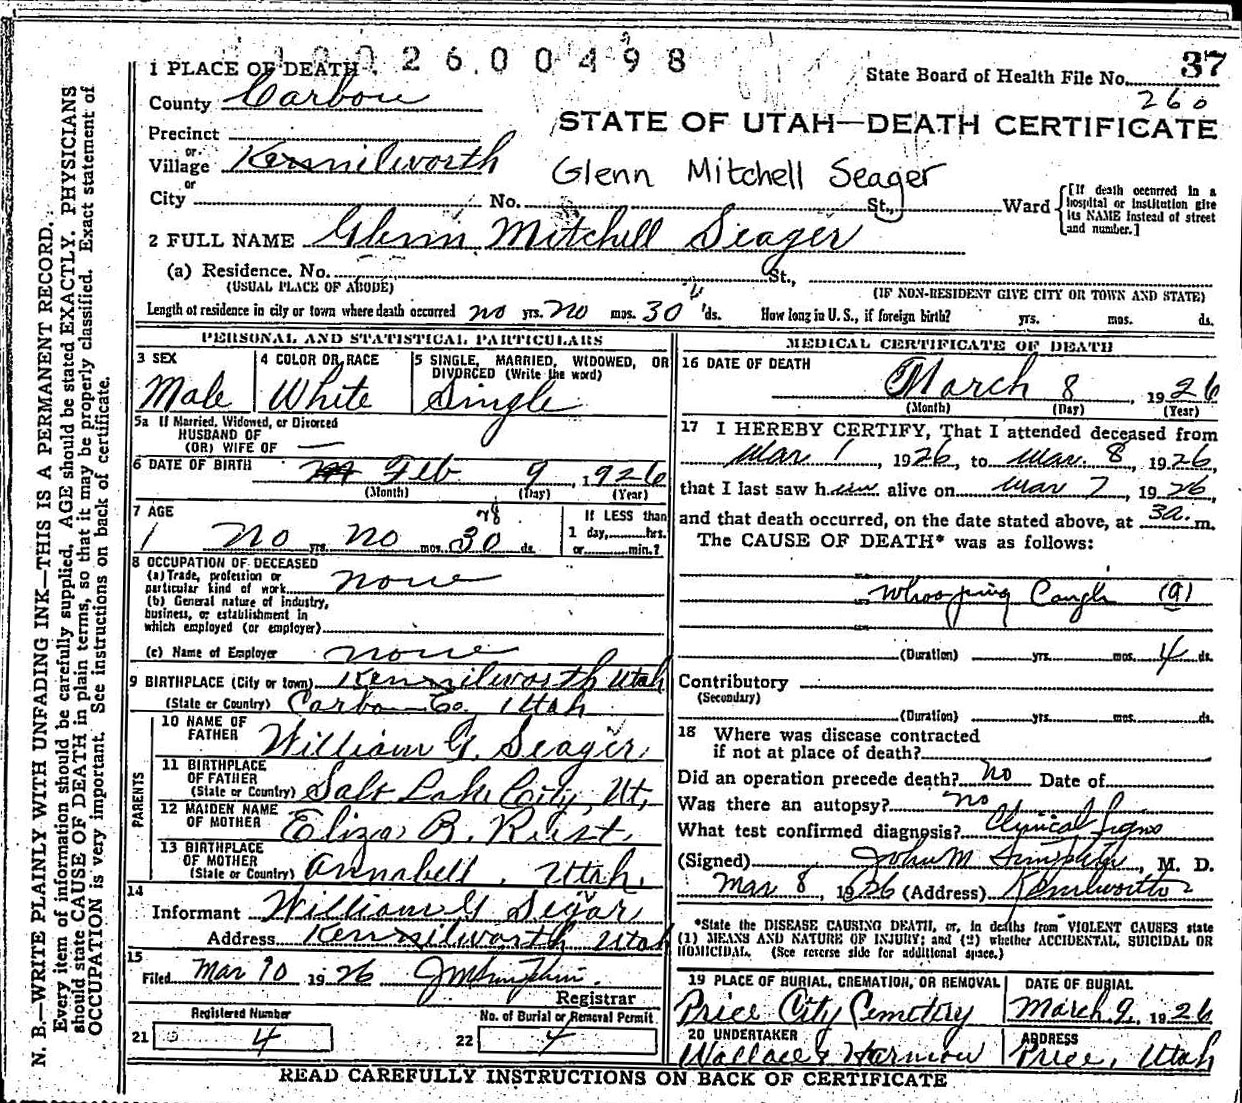 2600498
1 PLACE OF DEATH
State Board of Health File No. 37
260
County Carbon
STATE OF UTAH—DEATH CERTIFICATE
Precinct
or
Village Kennilworth
Glenn Mitchell Seager
or
City No. St., Ward [If death occurred in a hospital or institution give its NAME instead of street and number.]
2 FULL NAME Glenn Mitchell Seager
(a) Residence. No. St.,
(USUAL PLACE OF ABODE) (IF NON-RESIDENT GIVE CITY OR TOWN AND STATE)
Length of residence in city or town where death occurred no yrs. no mos. 30 ds. How long in U. S., if foreign birth? yrs. mos. ds.
PERSONAL AND STATISTICAL PARTICULARS
3 SEX
Male
4 COLOR OR RACE
White
5 SINGLE, MARRIED, WIDOWED, OR DIVORCED (Write the word)
Single
5a If Married, Widowed, or Divorced
HUSBAND OF
(OR) WIFE OF —
6 DATE OF BIRTH Feb 9, 1926
(Month) (Day) (Year)
7 AGE
28
No yrs. No mos. 30 ds.
If LESS than
1 day, hrs.
or min.?
8 OCCUPATION OF DECEASED
(a) Trade, profession or
particular kind of work none
(b) General nature of industry,
business, or establishment in
which employed (or employer)
(c) Name of Employer none
9 BIRTHPLACE (City or town) Kennilworth Utah
(State or Country) Carbon Co. Utah
PARENTS
10 NAME OF FATHER William G. Seager
11 BIRTHPLACE OF FATHER
(State or Country) Salt Lake City, Ut.
12 MAIDEN NAME OF MOTHER Eliza B. Reist
13 BIRTHPLACE OF MOTHER
(State or Country) Annabell, Utah.
14
Informant William G Segar
Address Kennilworth Utah
15
Filed Mar 10 1926 J M Simpkin.
Registrar
Registered Number
21 4
No. of Burial or Removal Permit
22 4
MEDICAL CERTIFICATE OF DEATH
16 DATE OF DEATH
March 8, 1926
(Month) (Day) (Year)
17 I HEREBY CERTIFY, That I attended deceased from
Mar 1, 1926, to Mar. 8, 1926,
that I last saw him alive on Mar 7, 1926,
and that death occurred, on the date stated above, at 3 a. m.
The CAUSE OF DEATH* was as follows:
Whooping Cough (9)
(Duration) yrs. mos. 4 ds.
Contributory
(Secondary)
(Duration) yrs. mos. ds.
18 Where was disease contracted
if not at place of death?
Did an operation precede death? no Date of
Was there an autopsy? no
What test confirmed diagnosis? Clynical signs
(Signed) John M Simpkin, M. D.
Mar 8, 1926 (Address) Kenilworth
*State the DISEASE CAUSING DEATH, or, in deaths from VIOLENT CAUSES state
(1) MEANS AND NATURE OF INJURY; and (2) whether ACCIDENTAL, SUICIDAL OR
HOMICIDAL. (See reverse side for additional space.)
19 PLACE OF BURIAL, CREMATION, OR REMOVAL
Price City Cemetery
DATE OF BURIAL
March 9, 1926
20 UNDERTAKER
Wallace & Harmon
ADDRESS
Price, Utah
READ CAREFULLY INSTRUCTIONS ON BACK OF CERTIFICATE
N. B.—WRITE PLAINLY WITH UNFADING INK—THIS IS A PERMANENT RECORD.
Every item of information should be carefully supplied. AGE should be stated EXACTLY. PHYSICIANS
should state CAUSE OF DEATH in plain terms, so that it may be properly classified. Exact statement of
OCCUPATION is very important. See instructions on back of certificate.